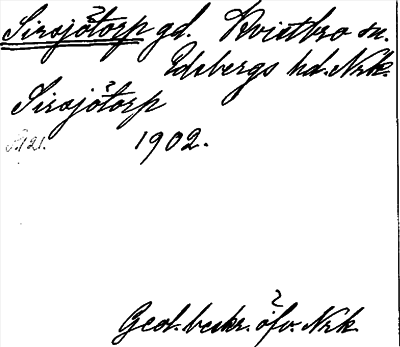 Sirsjötorp gd. Kvistbro sn.
Edsbergs hd. Nrk.
Sirsjötorp
1902.
Geol. beskr. öfv. Nrk.